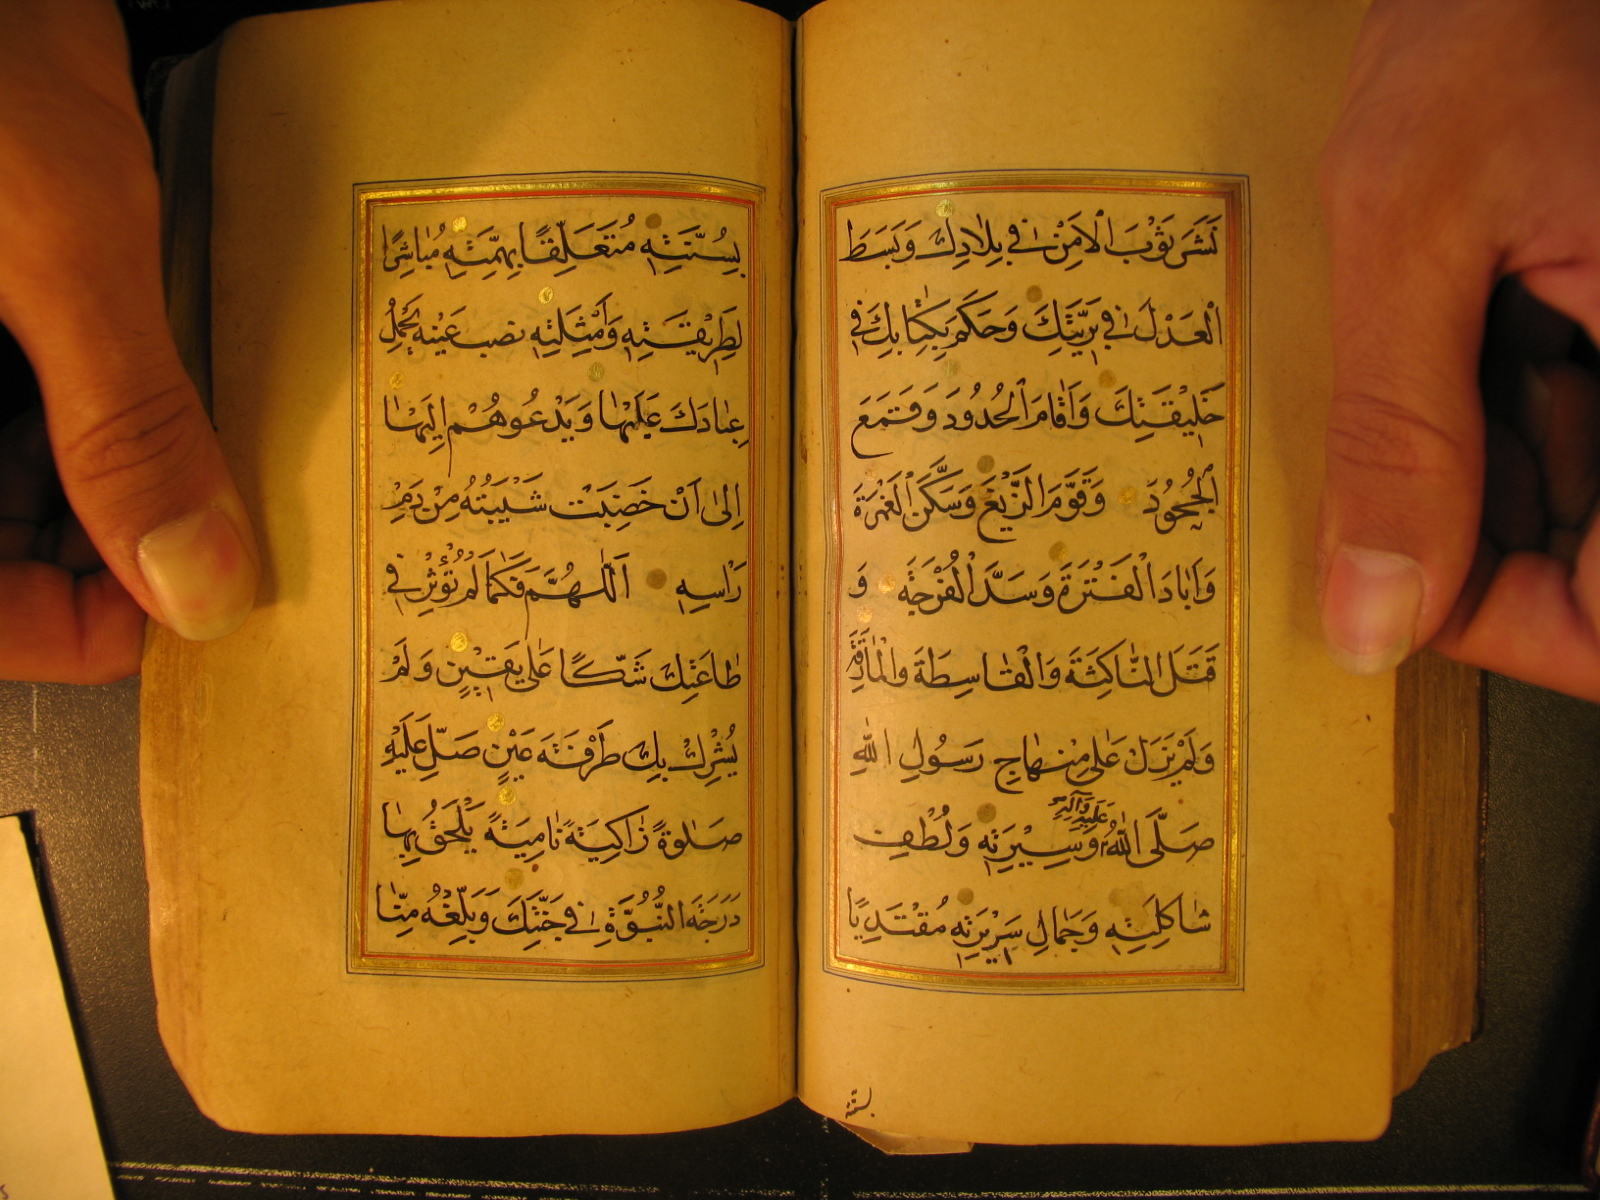 نَشَرَ ثَوْبَ الْاَمْنِ فِي بِلَادِكَ وَبَسَطَ
الْعَدْلَ فِي بَرِيَّتِكَ وَحَكَمَ بِكِتَابِكَ فِي
خَلِيْقَتِكَ وَاَقَامَ الْحُدُودَ وَقَمَعَ
الْجُحُودَ وَقَوَّمَ الزَّيْغَ وَسَكَّنَ الْغَمْرَةَ
وَاَبَادَ الْفَتْرَةَ وَسَدَّ الْفُرْجَةَ وَ
قَتَلَ النَّاكِثَةَ وَالْقَاسِطَةَ وَالْمَارِقَةَ
وَلَمْ يَزَلْ عَلٰى مِنْهَاجِ رَسُولِ اللهِ
صَلَّى اللهُ عَلَيْهِ وَآلِهِ وَسِيْرَتِهِ وَلُطْفِ
شَاكِلَتِهِ وَجَمَالِ سَرِيْرَتِهِ مُقْتَدِيًا
بسنته
بِسُنَّتِهِ مُتَعَلِّقًا بِهِمَّتِهِ مُبَاشِرًا
لِطَرِيْقَتِهِ وَاَمْثِلَتِهِ نصب عَيْنِهِ يَحْمِلُ
عِبَادَكَ عَلَيْهَا وَيَدْعُوهُمْ اِلَيْهَا
اِلٰى اَنْ خَضِبَتْ شَيْبَتُهُ مِنْ دَمِ
رَاْسِهِ اَللّٰهُمَّ فَكَمَا لَمْ يُؤْثِرْ فِي
طَاعَتِكَ شَكًّا عَلٰى يَقِيْنٍ وَلَمْ
يُشْرِكْ بِكَ طَرْفَةَ عَيْنٍ صَلِّ عَلَيْهِ
صَلٰوةً زَاكِيَةً نَامِيَةً يَلْحَقُ بِهَا
دَرَجَةَ النُّبُوَّةِ فِي جَنَّتِكَ وَبَلِّغْهُ مِنَّا